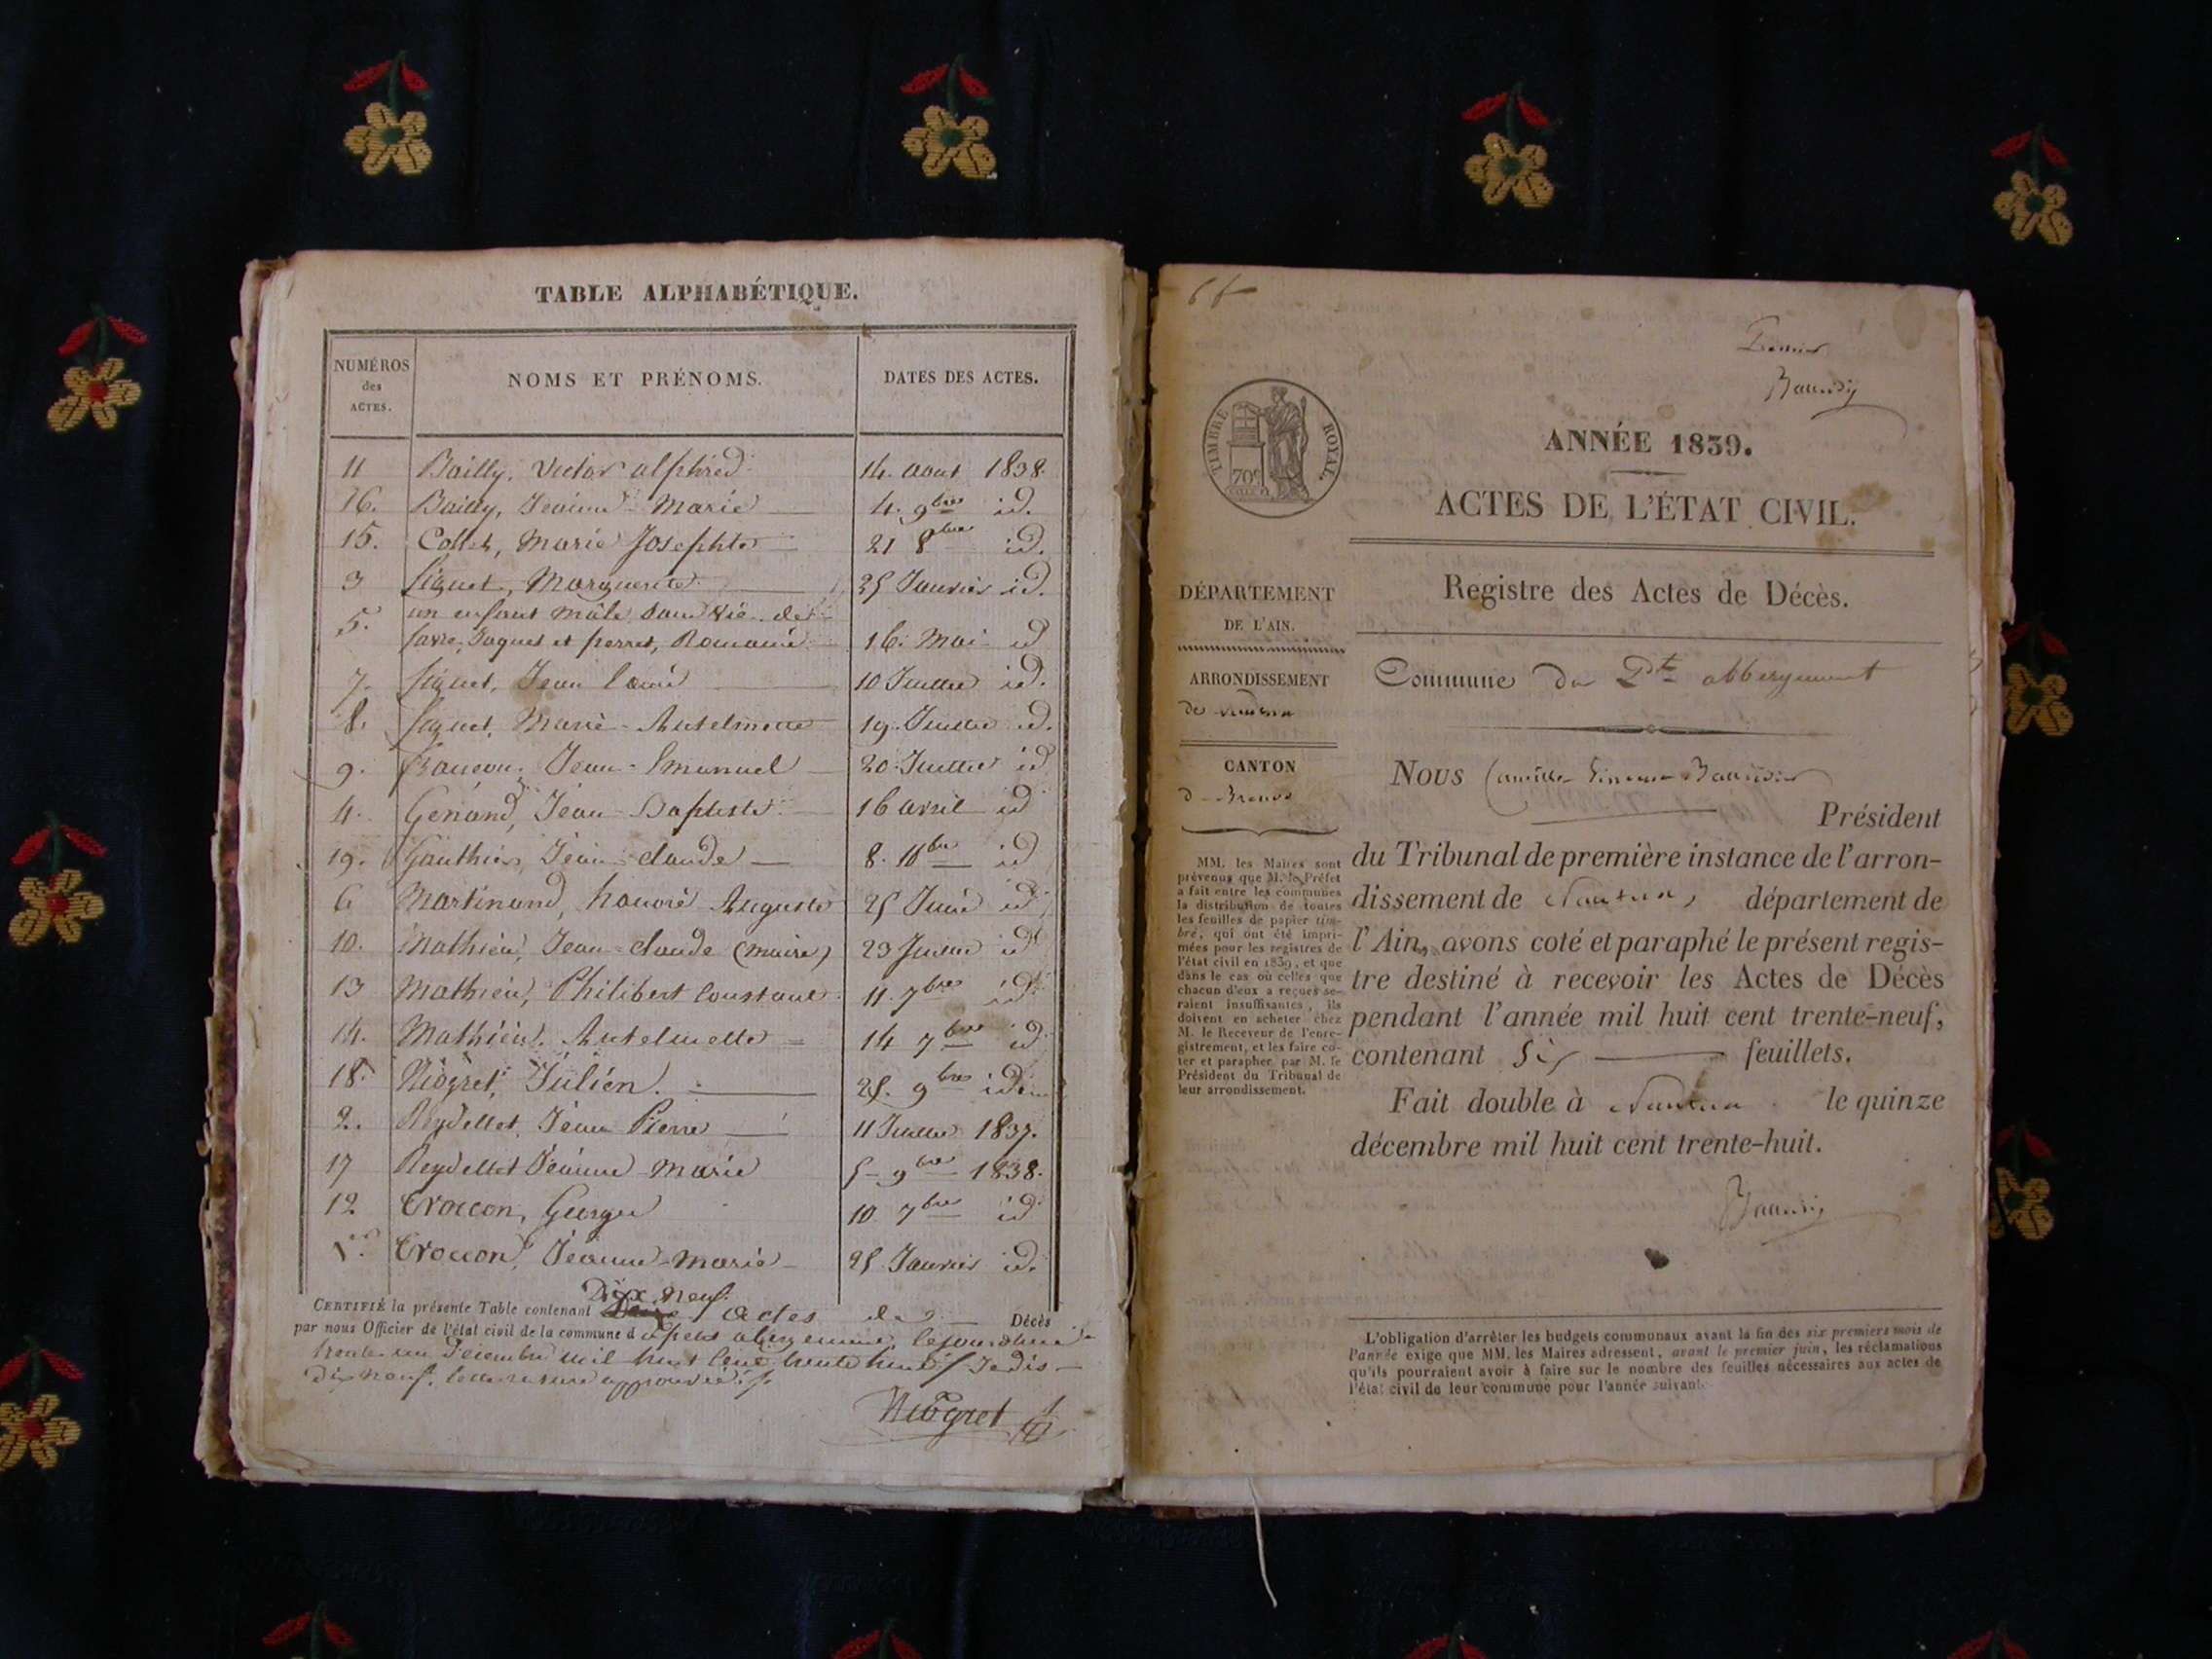 TABLE ALPHABÉTIQUE.
NUMÉROS des ACTES. NOMS ET PRÉNOMS. DATES DES ACTES.
11 Bailly, Victor alphred 14. aout 1838.
16. Bailly, Jeanne Marie 4. 9bre id.
15. Collet, Marie Josephte 21 8bre id.
3 figuet, Marguerite 25 Janvier id.
5. un enfant mâle sans vie de
favre, Jaques et perret, Romaine 16. Mai id
7. figuet, Jean 10 Juillet id.
8. figuet, Marie Antelmette 19. Juillet id.
9. Jean Emanuel 20 Juillet id
4. Génand, Jean Baptiste 16 avril id
19. Gauthier, Jean claude 8. 10bre id
6 Martinand, honoré Auguste 25 Juin id
10. Mathieu, Jean claude (maire) 23 Juillet id
13 Mathieu, Philibert Constant 11. 7bre id.
14. Mathieu, Antelmette 14 7bre id
18. Niogret, Julien. 25. 9bre id.
2. Reydellet, Jean Pierre 11 Juillet 1837.
17 Reydellet Jeanne Marie 5 9bre 1838.
12 Croccon, George 10 7bre id
1er Croccon, Jeanne Marie 25 Janvier id.
Dix neuf
CERTIFIÉ la présente Table contenant actes de Décès
par nous Officier de l'état civil de la commune d
trente un Décembre mil huit cent trente huit / Je dis
Dix neuf. approuvée
Niogret
Premier
Baudin
TIMBRE ROYAL
70c
ANNÉE 1839.
ACTES DE L'ÉTAT CIVIL.
DÉPARTEMENT
DE L'AIN.
ARRONDISSEMENT
de Nantua
CANTON
d Brenod
MM. les Maires sont
prévenus que M. le Préfet
a fait entre les communes
la distribution de toutes
les feuilles de papier tim-
bré, qui ont été impri-
mées pour les registres de
l'état civil en 1839, et que
dans le cas où celles que
chacun d'eux a reçues se-
raient insuffisantes, ils
doivent en acheter chez
M. le Receveur de l'enre-
gistrement, et les faire co-
ter et parapher par M. le
Président du Tribunal de
leur arrondissement.
Registre des Actes de Décès.
Commune du Pt abbergement
NOUS Camille
Président
du Tribunal de première instance de l'arron-
dissement de Nantua, département de
l'Ain, avons coté et paraphé le présent regis-
tre destiné à recevoir les Actes de Décès
pendant l'année mil huit cent trente-neuf,
contenant Six feuillets.
Fait double à Nantua le quinze
décembre mil huit cent trente-huit.
L'obligation d'arrêter les budgets communaux avant la fin des six premiers mois de
l'année exige que MM. les Maires adressent, avant le premier juin, les réclamations
qu'ils pourraient avoir à faire sur le nombre des feuilles nécessaires aux actes de
l'état civil de leur commune pour l'année suivante.